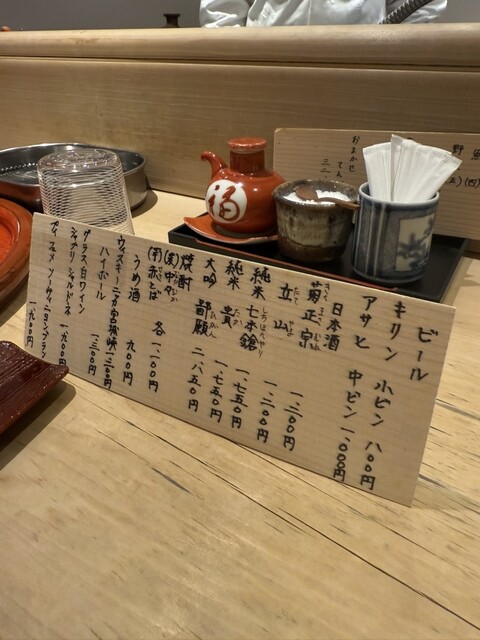 ビール
キリン 小ビン 八〇〇円
アサヒ 中ビン 一、〇〇〇円
日本酒
菊正宗 きくまさむね 一、一〇〇円
立山 たてやま 一、二〇〇円
純米 七本鎗 しちほんやり 一、七五〇円
純米 貴 たか 一、七五〇円
大吟 誓願 二、八五〇円
焼酎
(麦)中々
(芋)赤とんぼ 各 一、〇〇〇円
うめ酒 九〇〇円
ウイスキー
ハイボール 一、三〇〇円
グラス白ワイン
シャブリ シャルドネ 一、九〇〇円
一、九〇〇円
福
おまかせ
てん
野
魚